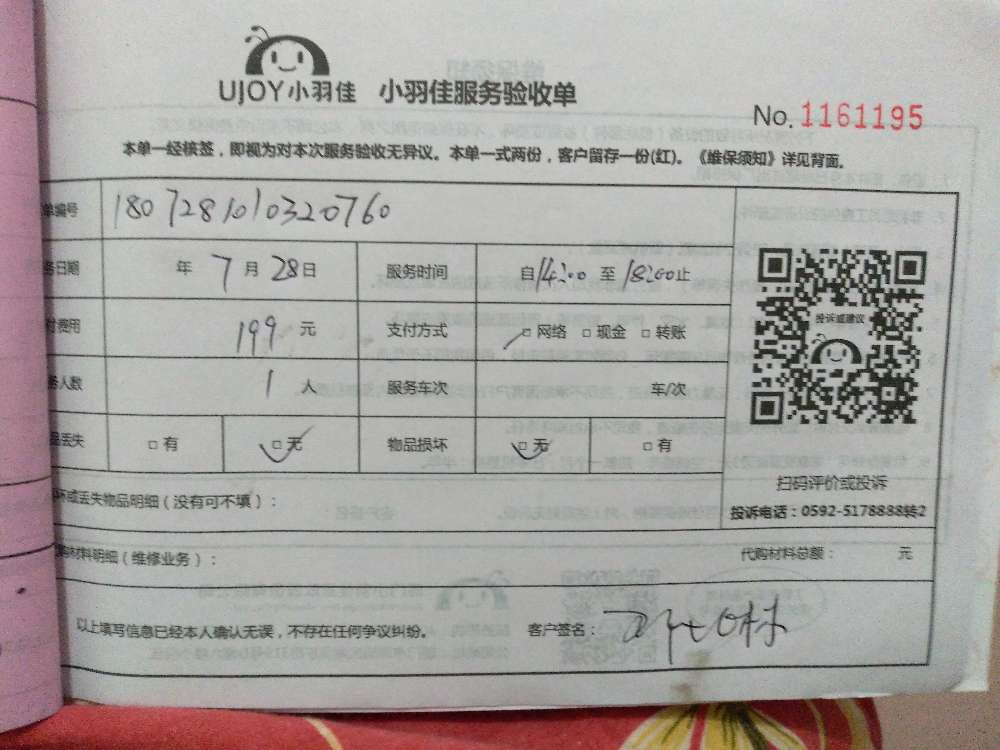 UJOY小羽佳 小羽佳服务验收单
No. 1161195
本单一经核签，即视为对本次服务验收无异议。本单一式两份，客户留存一份(红)。《维保须知》详见背面。
单编号 1807281010320760
务日期 年 7 月 28 日 服务时间 自 14:00 至 18:00 止
付费用 199 元 支付方式 □ 网络 □ 现金 □ 转账
务人数 1 人 服务车次 车/次
品丢失 □ 有 □ 无 物品损坏 □ 无 □ 有
投诉或建议
扫码评价或投诉
投诉电话：0592-5178888转2
坏或丢失物品明细（没有可不填）：
购材料明细（维修业务）： 代购材料总额： 元
以上填写信息已经本人确认无误，不存在任何争议纠纷。 客户签名：